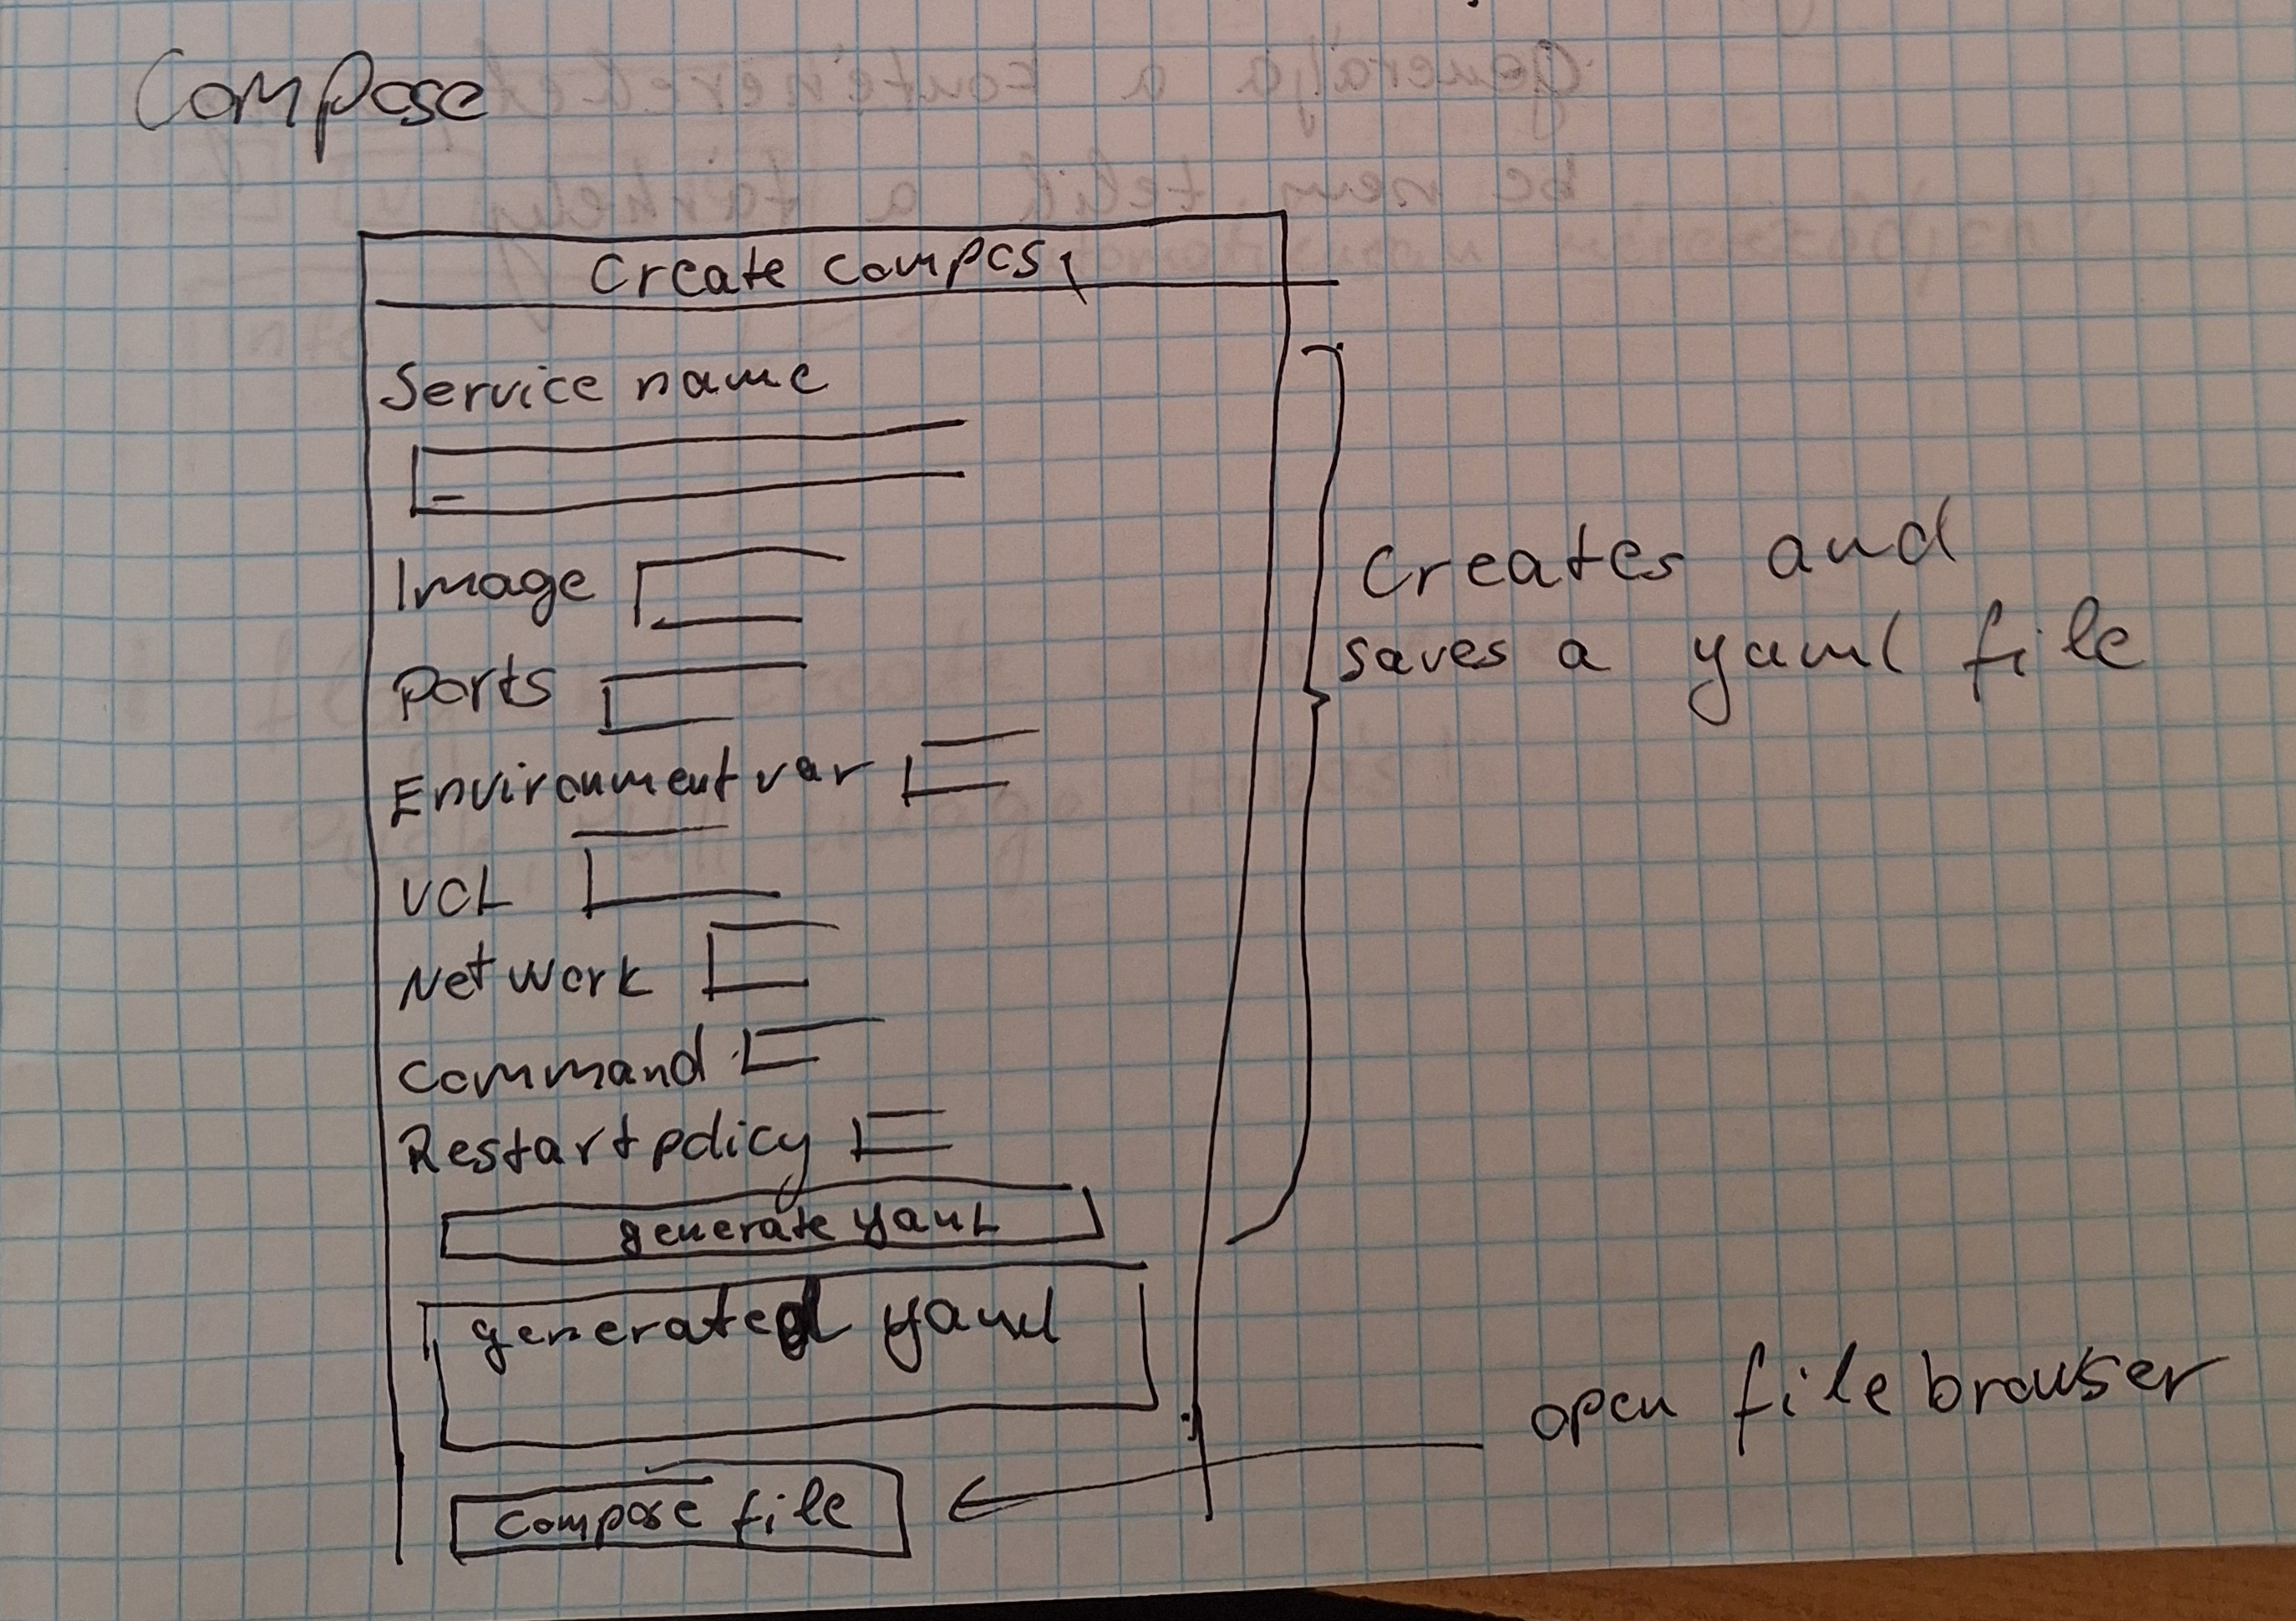 Compose
Create compose
Service name
Image
Ports
Environment var
VOL
Network
Command
Restart policy
generate yaml
generated yaml
compose file
creates and
saves a yaml file
open file browser